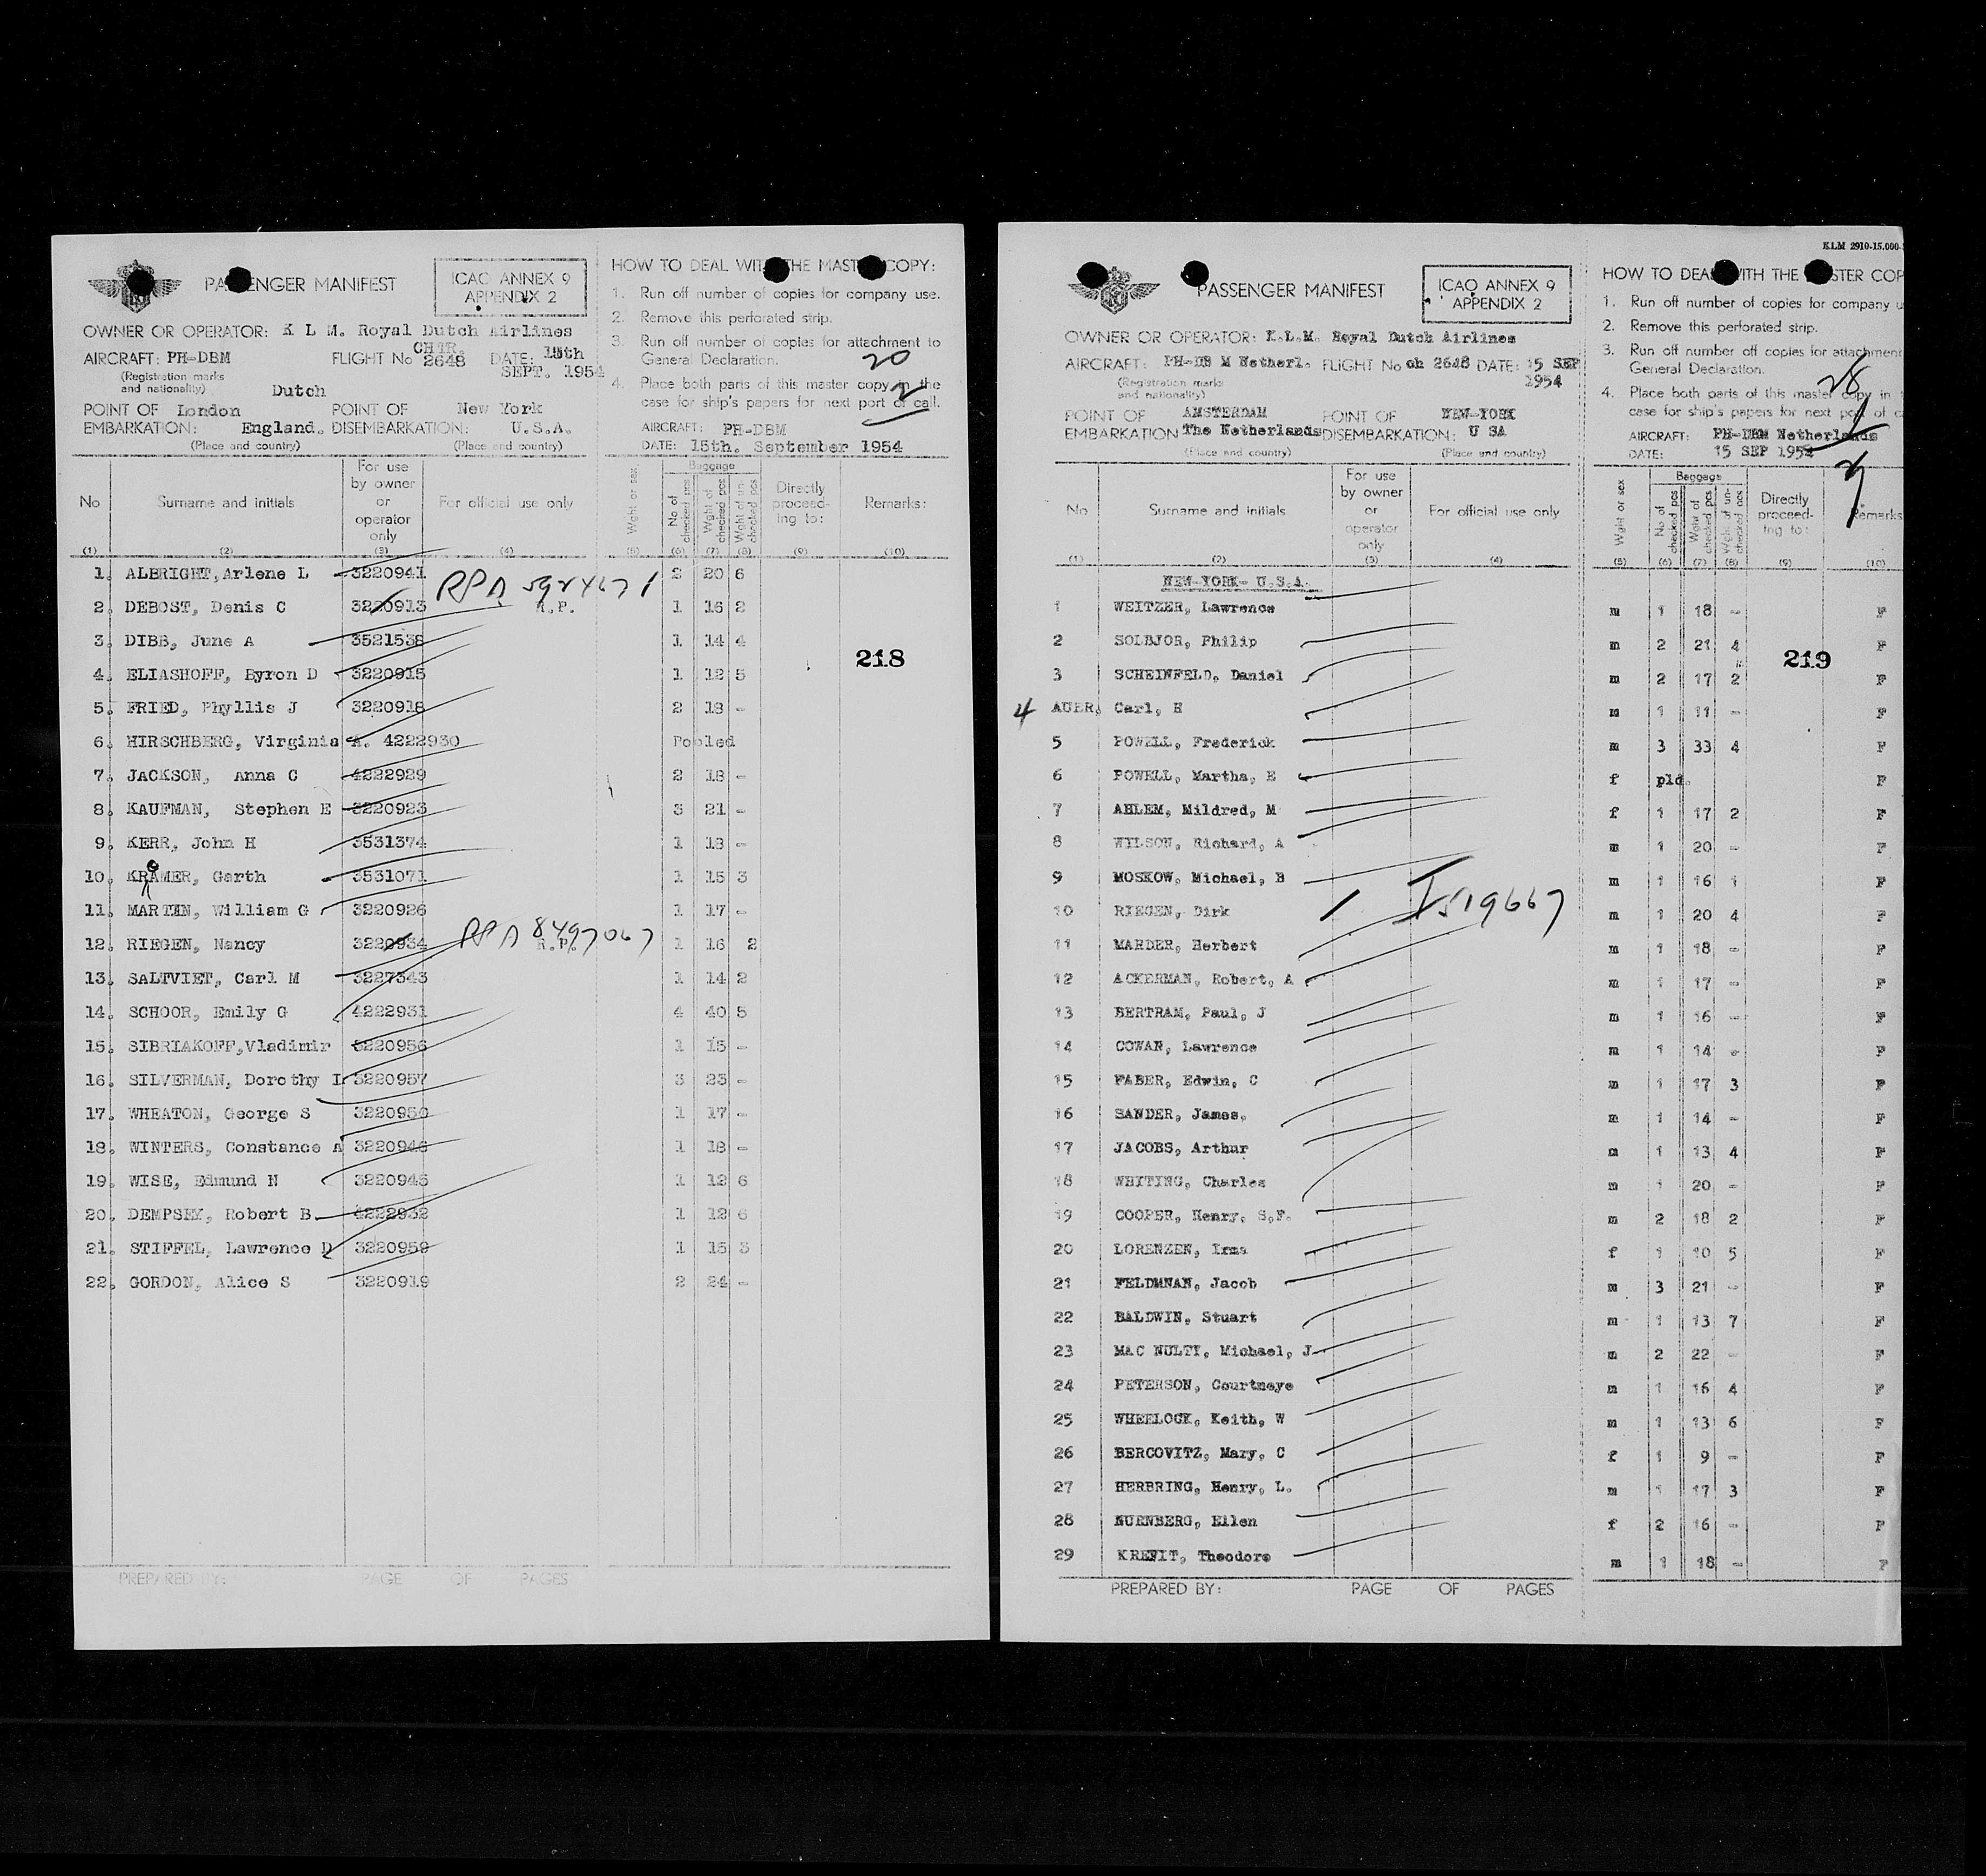 PASSENGER MANIFEST
ICAO ANNEX 9
APPENDIX 2
OWNER OR OPERATOR: K L M. Royal Dutch Airlines
CHTR.
AIRCRAFT: PH-DBM FLIGHT No 2648 DATE: 15th
SEPT. 1954
(Registration marks
and nationality) Dutch
POINT OF London POINT OF New York
EMBARKATION: England. DISEMBARKATION: U.S.A.
(Place and country) (Place and country)
HOW TO DEAL WITH THE MASTER COPY:
1. Run off number of copies for company use.
2. Remove this perforated strip.
3. Run off number of copies for attachment to
General Declaration.
20
4. Place both parts of this master copy in the
case for ship's papers for next port of call.
2
AIRCRAFT: PH-DBM
DATE: 15th. September 1954
No Surname and initials For use by owner or operator only For official use only Wght or sex Baggage No of checked pcs Wght of checked pcs Wght of un-checked pcs Directly proceed-ing to: Remarks:
(1) (2) (3) (4) (5) (6) (7) (8) (9) (10)
1. ALBRIGHT, Arlene L 3220941 2 20 6
RPA 5924671
2. DEBOST, Denis C 3220913 R.P. 1 16 2
3. DIBB, June A 3521538 1 14 4
218
4. ELIASHOFF, Byron D 3220915 1 12 5
5. FRIED, Phyllis J 3220918 2 18 -
6. HIRSCHBERG, Virginia A. 4222930 Pooled
7. JACKSON, Anna C 4222929 2 18 -
8. KAUFMAN, Stephen E 3220923 3 21 -
9. KERR, John H 3531374 1 18 -
10. KRAMER, Garth 3531071 1 15 3
11. MARTIN, William G 3220926 1 17 -
12. RIEGEN, Nancy 3220934 RPA 8497067 R.P. 1 16 2
13. SALTVIET, Carl M 3227343 1 14 2
14. SCHOOR, Emily G 4222931 4 40 5
15. SIBRIAKOFF, Vladimir 3220956 1 15 -
16. SILVERMAN, Dorothy I 3220957 3 23 -
17. WHEATON, George S 3220950 1 17 -
18. WINTERS, Constance A 3220946 1 18 -
19. WISE, Edmund N 3220945 1 12 6
20. DEMPSEY, Robert B. 4222932 1 12 6
21. STIFFEL, Lawrence D 3220959 1 15 3
22. GORDON, Alice S 3220919 2 24 -
PREPARED BY: PAGE OF PAGES
KLM 2910-15.000-
PASSENGER MANIFEST
ICAO ANNEX 9
APPENDIX 2
OWNER OR OPERATOR: K.L.M. Royal Dutch Airlines
AIRCRAFT: PH-DB M Netherl. FLIGHT No ch 2648 DATE: 15 SEP
1954
(Registration marks
and nationality)
POINT OF AMSTERDAM POINT OF NEW-YORK
EMBARKATION The Netherlands DISEMBARKATION: U SA
(Place and country) (Place and country)
HOW TO DEAL WITH THE MASTER COP
1. Run off number of copies for company u
2. Remove this perforated strip.
3. Run off number off copies for attachment
General Declaration.
28
4. Place both parts of this master copy in t
case for ship's papers for next port of c
1
AIRCRAFT: PH-DBM Netherlands
DATE: 15 SEP 1954
No Surname and initials For use by owner or operator only For official use only Wght or sex Baggage No of checked pcs Wght of checked pcs Wght of un-checked pcs Directly proceed-ing to: Remarks
(1) (2) (3) (4) (5) (6) (7) (8) (9) (10)
NEW-YORK- U.S.A.
1 WEITZER, Lawrence m 1 18 - F
2 SOLBJOR, Philip m 2 21 4 F
219
3 SCHEINFELD, Daniel m 2 17 2 F
4 AUER, Carl, H m 1 11 - F
5 POWELL, Frederick m 3 33 4 F
6 POWELL, Martha, E f pld. F
7 AHLEM, Mildred, M f 1 17 2 F
8 WILSON, Richard, A m 1 20 - F
9 MOSKOW, Michael, B m 1 16 1 F
10 RIEGEN, Dirk I519667 m 1 20 4 F
11 MARDER, Herbert m 1 18 - F
12 ACKERMAN, Robert, A m 1 17 - F
13 BERTRAM, Paul, J m 1 16 - F
14 COWAN, Lawrence m 1 14 - F
15 FABER, Edwin, C m 1 17 3 F
16 SANDER, James, m 1 14 - F
17 JACOBS, Arthur m 1 13 4 F
18 WHITING, Charles m 1 20 - F
19 COOPER, Henry, S.F. m 2 18 2 F
20 LORENZEN, Irma f 1 10 5 F
21 FELDMNAN, Jacob m 3 21 - F
22 BALDWIN, Stuart m 1 13 7 F
23 MAC NULTY, Michael, J m 2 22 - F
24 PETERSON, Courtneye m 1 16 4 F
25 WHEELOCK, Keith, W m 1 13 6 F
26 BERCOVITZ, Mary, C f 1 9 - F
27 HERBRING, Henry, L. m 1 17 3 F
28 NURNBERG, Ellen f 2 16 - F
29 KREFIT, Theodore m 1 18 - F
PREPARED BY: PAGE OF PAGES